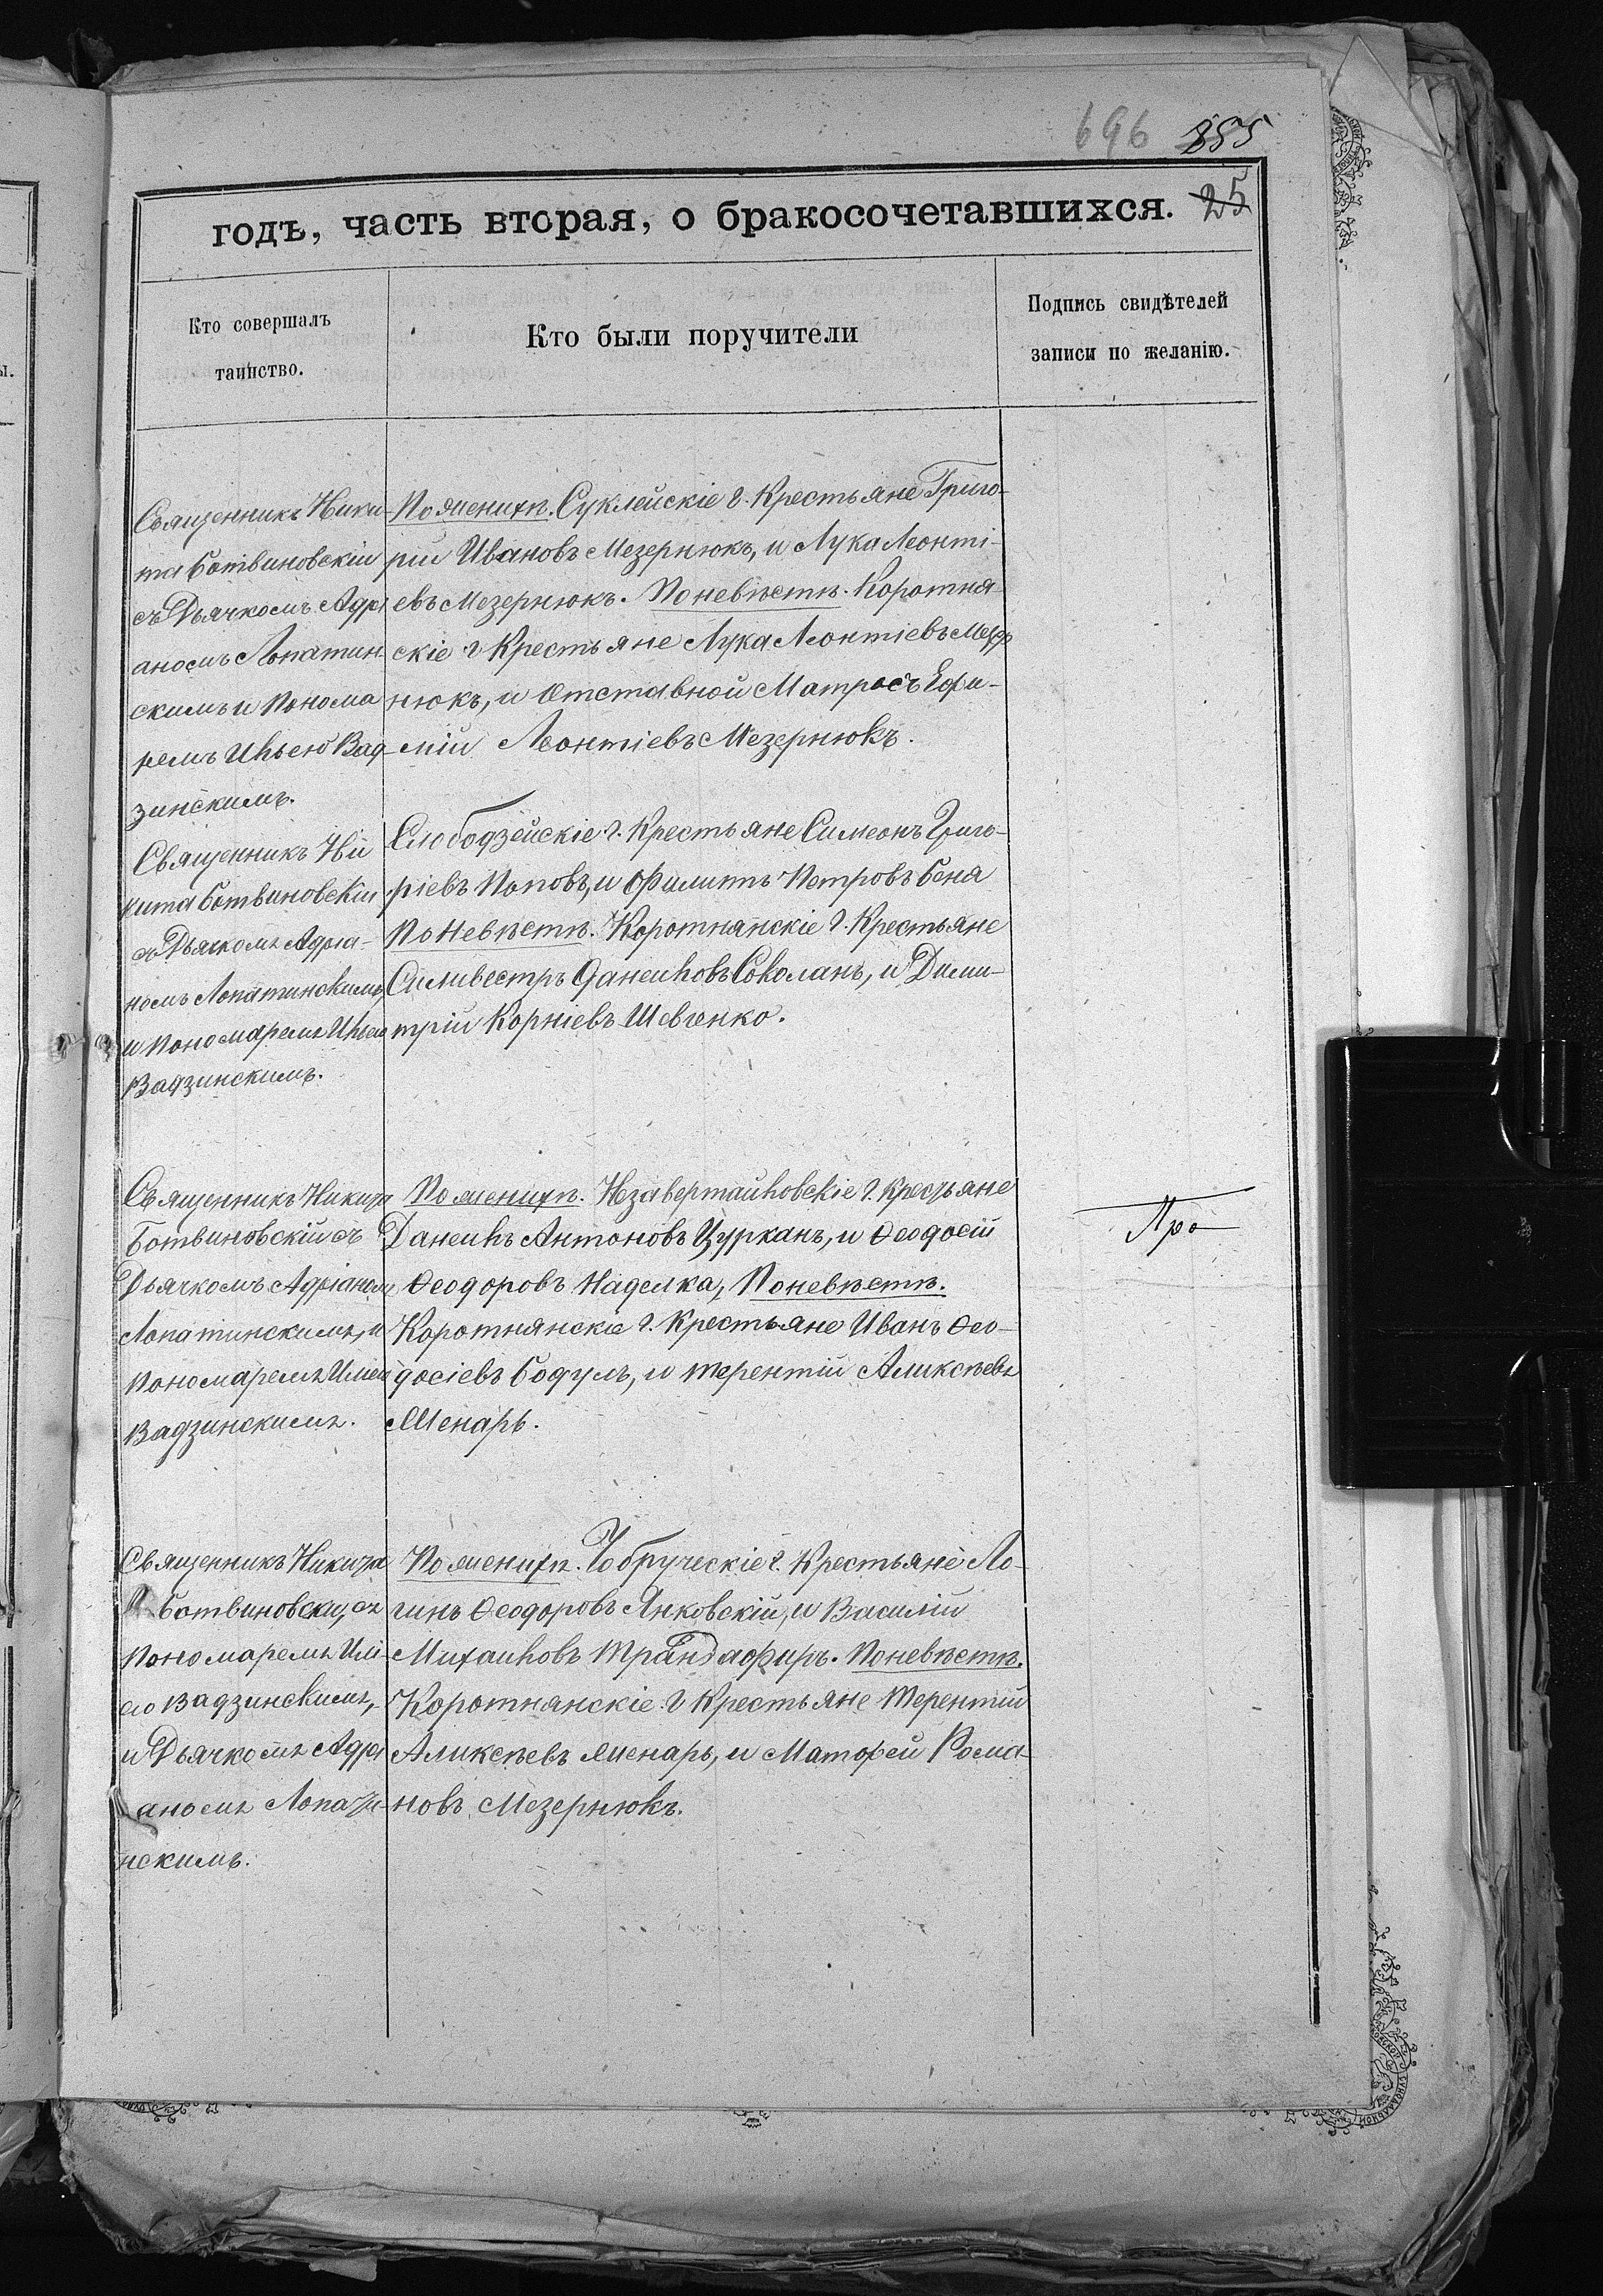 696 855
годъ, часть вторая, о бракосочетавшихся. 25
Кто совершалъ
таинство.
Кто были поручители
Подпись свидѣтелей
записи по желанію.
Священникъ Ники-
та Ботвиновскій
съ Дьячкомъ Адрі
аномъ Лопатин-
скимъ и Понома
ремъ Ильею Вад-
зинскимъ.
По женихѣ. Суклейскіе г. Крестьяне Григо-
рій Ивановъ Мезернюкъ, и Лука Леонті-
евъ Мезернюкъ. По невѣстѣ. Коротня-
скіе г Крестьяне Лука Леонтіевъ Мезер
нюкъ, и Отставной Матросъ Ефи-
мій Леонтіевъ Мезернюкъ.
Священникъ Ни
кита Ботвиновскій
съ Дьячкомъ Адріа-
номъ Лопатинскимъ,
и Пономаремъ Ильею
Вадзинскимъ.
Слободзейскіе г. Крестьяне Симеонъ Григо-
ріевъ Поповъ, и Филиппъ Петровъ Беня
По Невѣстѣ. Коротнянскіе г. Крестьяне
Сильвестръ Даниловъ Соколанъ, и Дими-
трій Корніевъ Шевченко.
Священникъ Никита
Ботвиновскій съ
Дьячкомъ Адріаномъ
Лопатинскимъ, и
Пономаремъ Ильею
Вадзинскимъ.
По женихѣ. Незавертайловскіе г. Крестьяне
Данеилъ Антоновъ Цурканъ, и Ѳеодосій
Ѳеодоровъ Наделка, По невѣстѣ.
Коротнянскіе г. Крестьяне Иванъ Ѳео-
досіевъ Бодулъ, и Терентій Аликсѣевъ
Менаръ.
Про
Священникъ Никита
Ботвиновскій, съ
Пономаремъ Илі-
ею Вадзинскимъ,
и Дьячкомъ Адрі
аномъ Лопати-
нскимъ.
По женихѣ. Чобручскіе г. Крестьяне Ло-
гинъ Ѳеодоровъ Янковскій, и Василій
Михаиловъ Трандафиръ. По невѣстѣ.
Коротнянскіе г Крестьяне Терентій
Аликсѣевъ Менаръ, и Матфей Рома-
новъ Мезернюкъ.